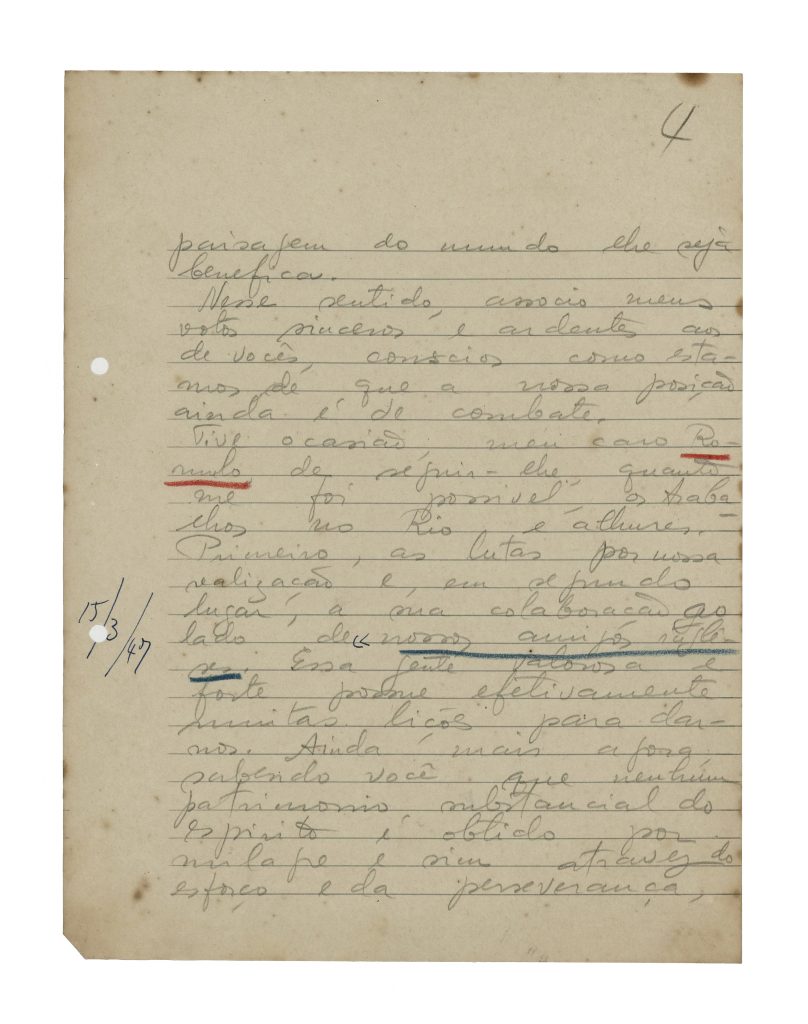 4
paisagem do mundo lhe seja
benefica.
Nesse sentido, associo meus
votos sinceros e ardentes aos
de vocês, conscios como esta-
mos de que a nossa posição
ainda é de combate.
Tive ocasião, meu caro Ro-
mulo de seguir-lhe, quanto
me foi possivel, os traba
lhos no Rio e alhures.
Primeiro, as lutas por nossa
realização e, em segundo
lugar, a sua colaboração ao
lado de nossos amigos ingle-
ses. Essa gente valorosa e
forte possue efetivamente
muitas lições para dar-
nos. Ainda mais agora
sabendo você que nenhum
patrimonio substancial do
espirito é obtido por
milagre e sim atravez do
esforço e da perseverança,
15/3/47